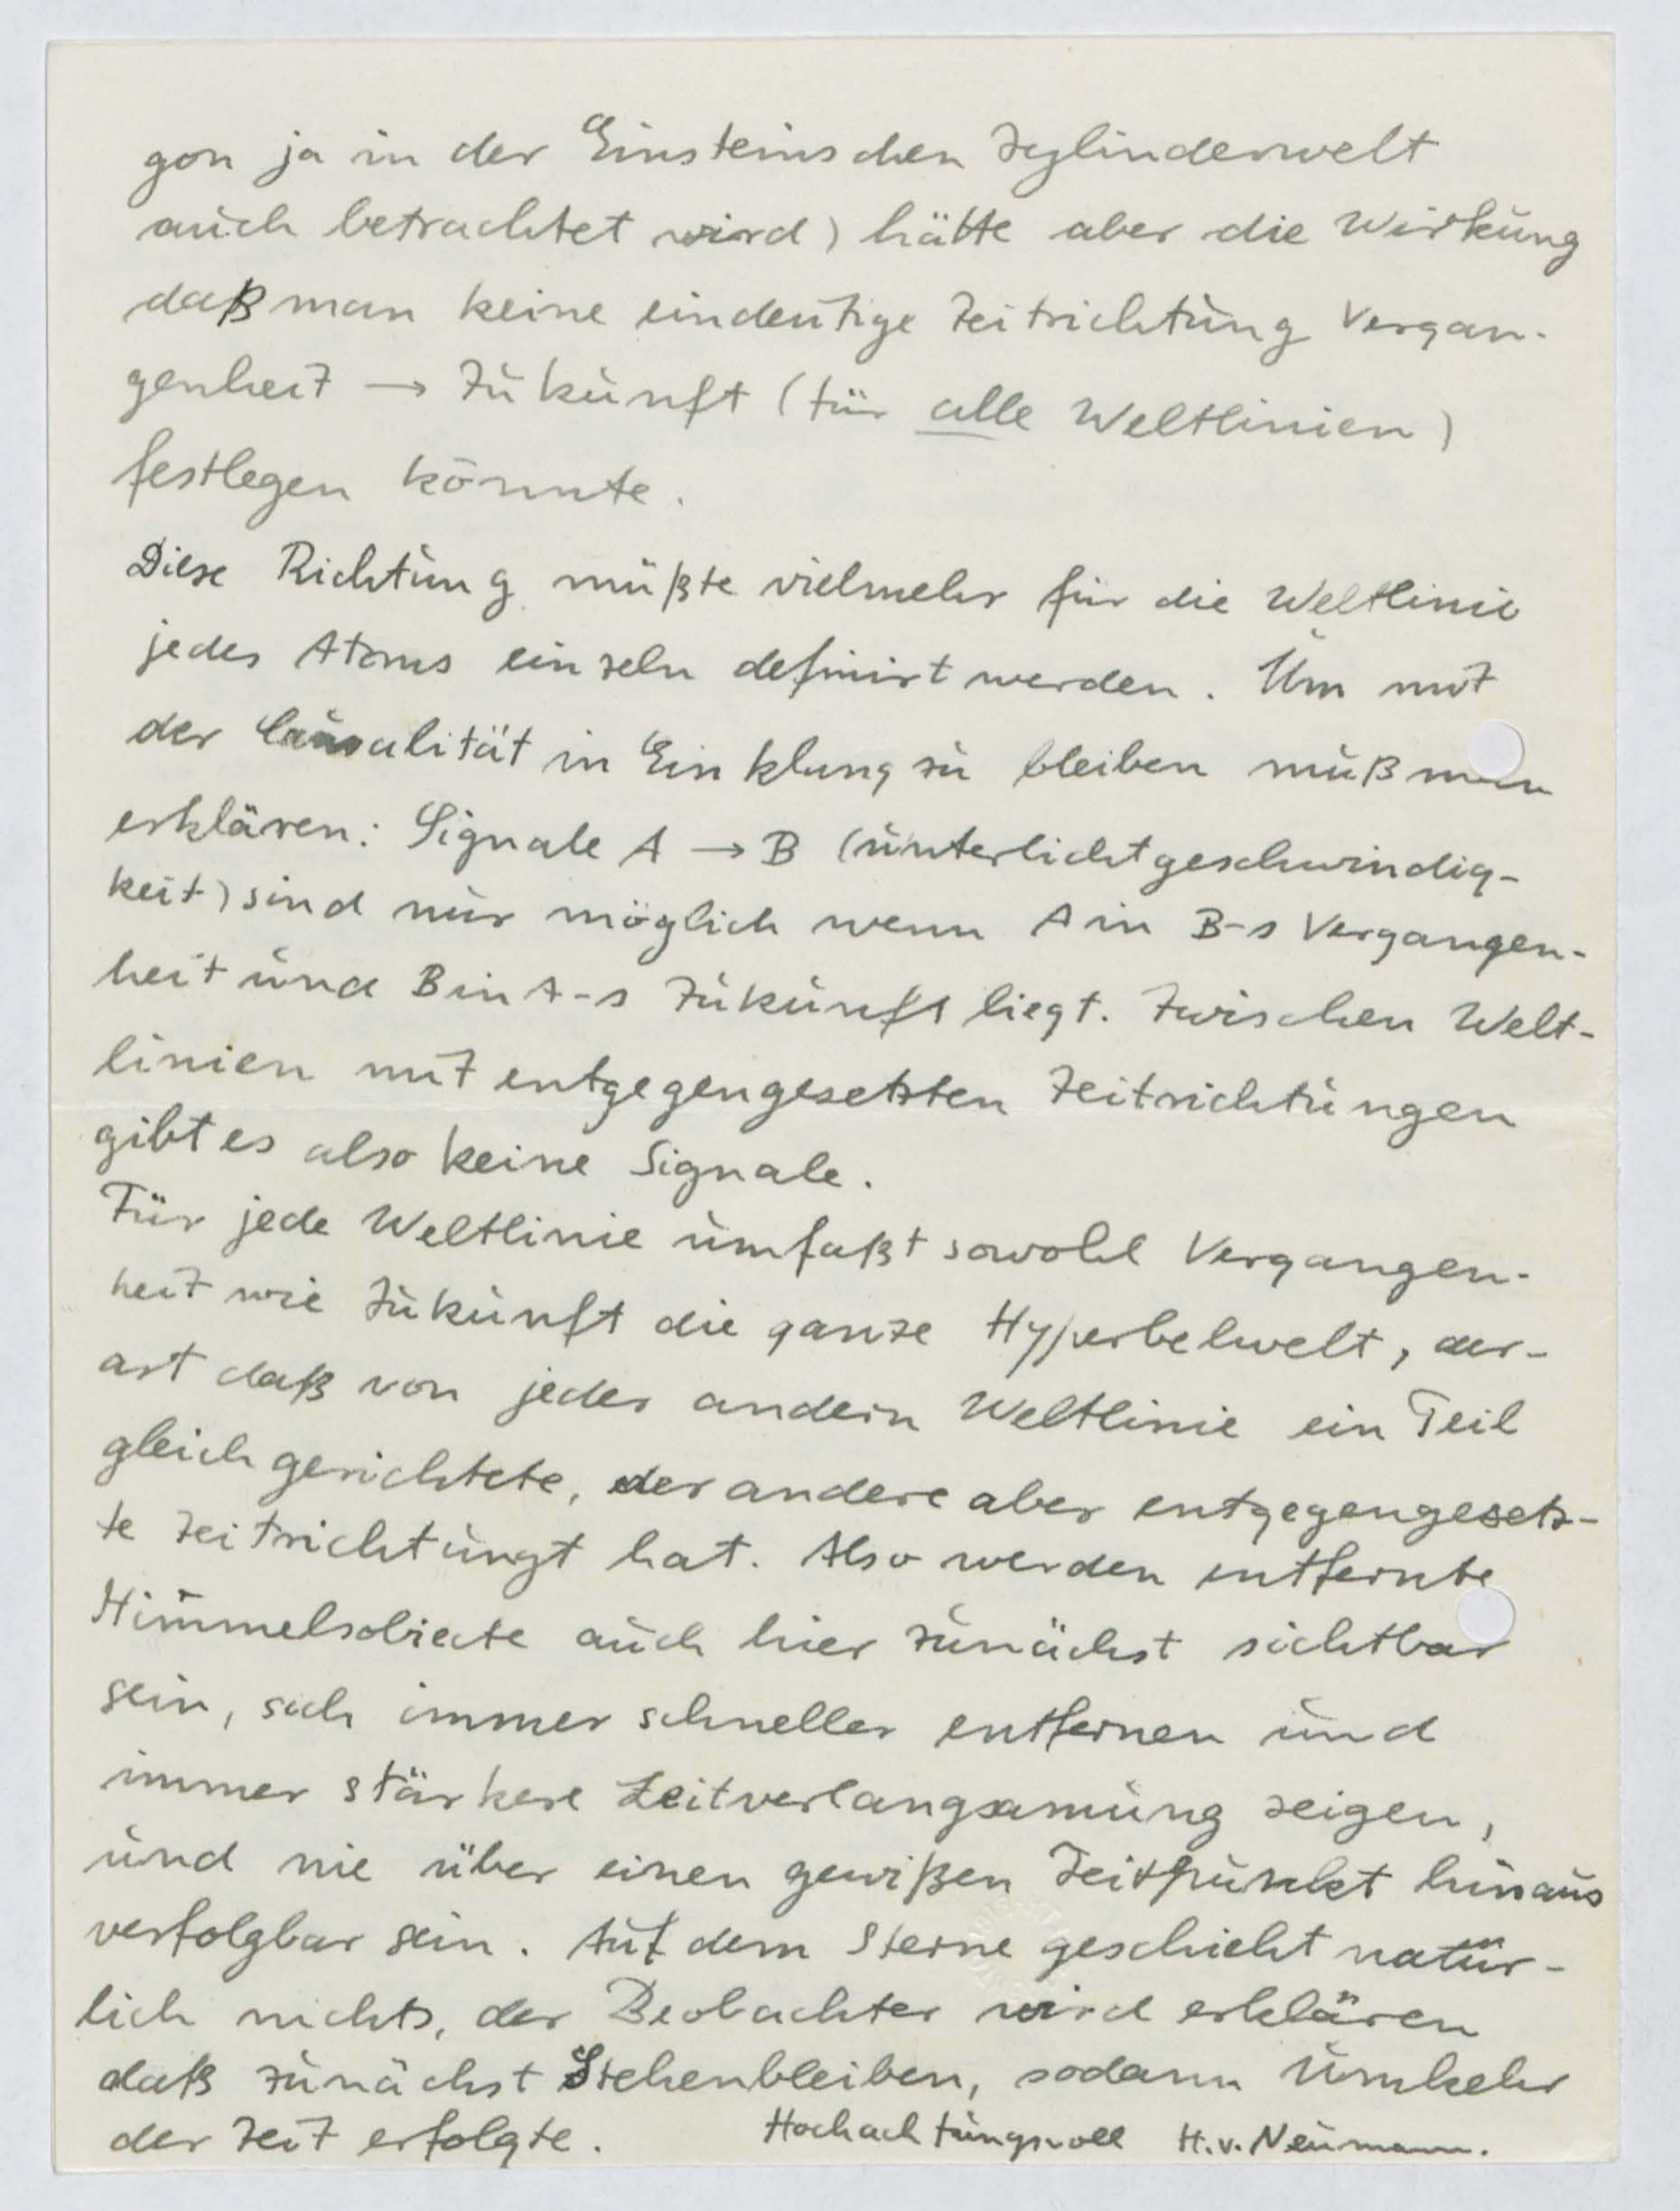 gon ja in der Einsteinschen Zylinderwelt
auch betrachtet wird) hätte aber die Wirkung
daß man keine eindeutige Zeitrichtung Vergan-
genheit → Zukunft (für alle Weltlinien)
festlegen könnte.
Diese Richtung müßte vielmehr für die Weltlinie
jedes Atoms einzeln definirt werden. Um mit
der Causalität in Einklang zu bleiben muß man
erklären: Signale A → B (unterlichtgeschwindig-
keit) sind nur möglich wenn A in B-s Vergangen-
heit und B in A-s Zukunft liegt. Zwischen Welt-
linien mit entgegengesetzten Zeitrichtungen
gibt es also keine Signale.
Für jede Weltlinie umfaßt sowohl Vergangen-
heit wie Zukunft die ganze Hyperbelwelt, der-
art daß von jeder andern Weltlinie ein Teil
gleich gerichtete, der andere aber entgegengesetz-
te Zeitrichtungt hat. Also werden entfernte
Himmelsobjecte auch hier zunächst sichtbar
sein, sich immer schneller entfernen und
immer stärkere Zeitverlangsamung zeigen,
und nie über einen gewißen Zeitpunkt hinaus
verfolgbar sein. Auf dem Sterne geschieht natür-
lich nichts, der Beobachter wird erklären
daß zunächst Stehenbleiben, sodann Umkehr
der Zeit erfolgte. Hochachtungsvoll H. v. Neumann.